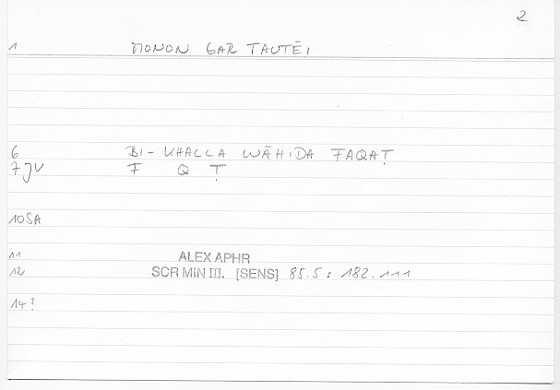 2
1 MONON GAR TAUTĒI
6 BI-KHALLA WĀHIDA FAQAṬ
7 JV F Q Ṭ
10 SA
11 ALEX APHR
12 SCR MIN III. [SENS] 85.5 : 182.111
14?